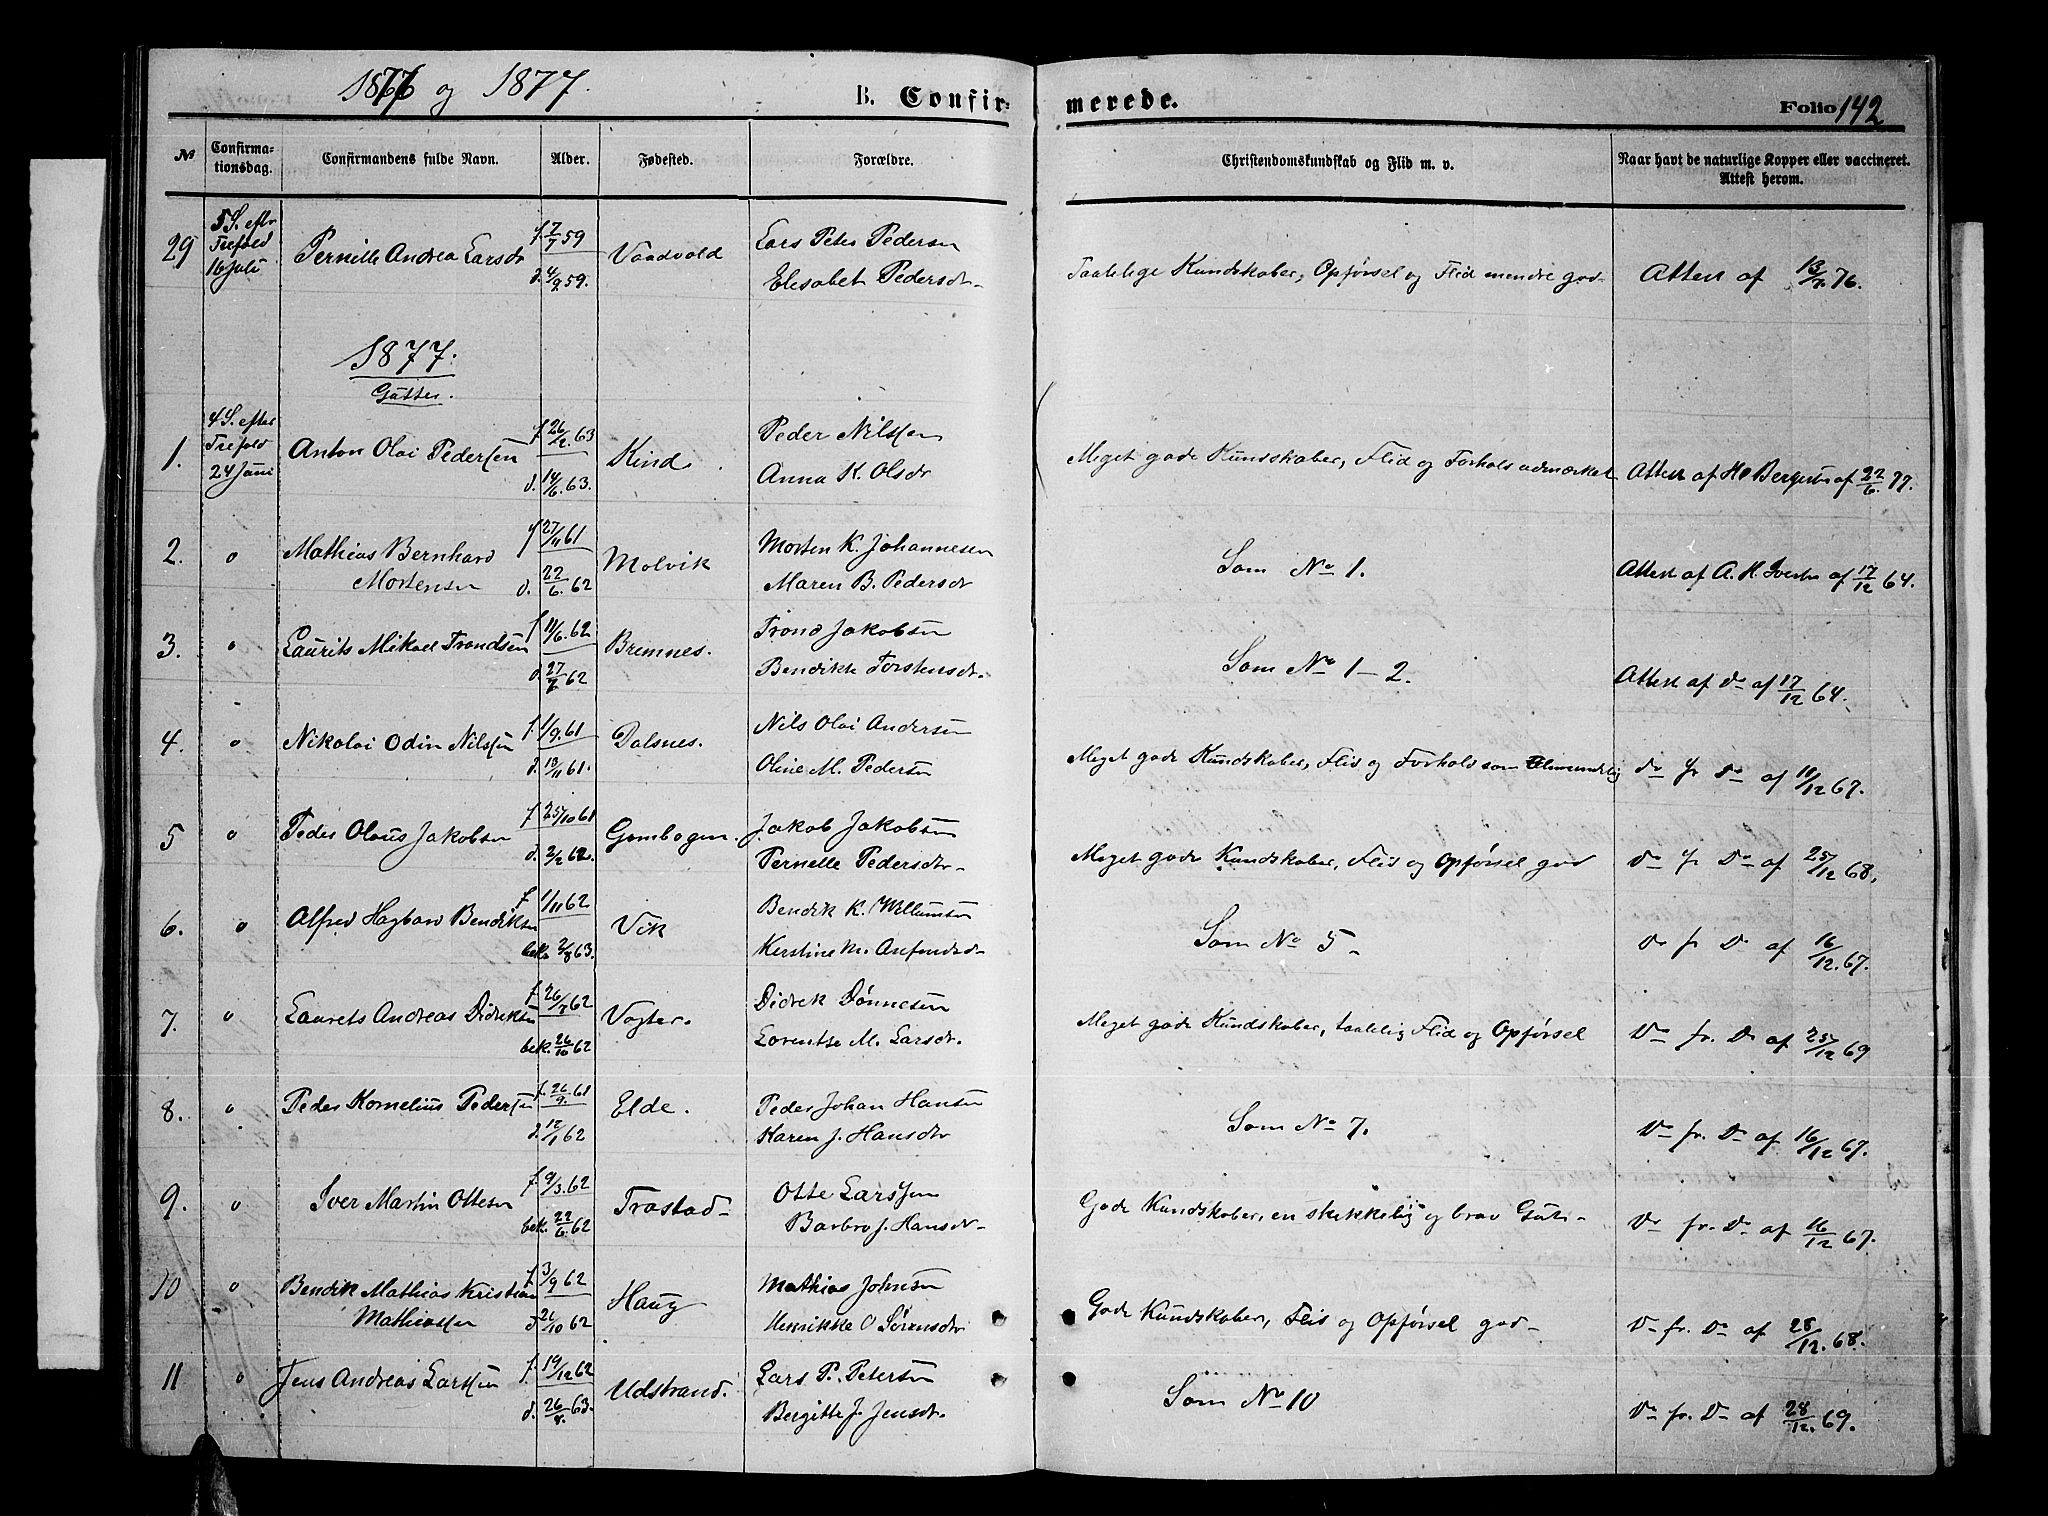 1876 og 1877.
B. Confirmerede.
Folio 142
№
Confirmationsdag.
Confirmandens fulde Navn.
Alder.
Fødested.
Forældre.
Christendomskundskab og Flid m. v.
Naar havt de naturlige Kopper eller vaccineret. Attest herom.
29
5 S. eftr Trefold 16 Juli
Pernille Andrea Larsdr
f. 7/7 59
d. 4/9 59.
Vaadvold
Lars Peter Pedersen
Elisabet Pedersdr
Taalelige Kundskaber, Opførsel og Flid mindre god
Attest af 13/7. 76.
1877.
Gutter.
1.
4 S. efter Trefold 24 Juni
Anton Olai Pedersen
f. 26/2. 63
d. 14/6. 63.
Kind
Peder Nilssen
Anna K. Olsdr
Meget gode Kundskaber, Flid og Forhold udmærket
Attest af 22/6. 77.
2.
"
Mathias Bernhard Mortensen
f 27/11 61
d. 22/6. 62
Molvik
Morten K. Johannesen
Maren B. Pedersdr
Som No 1.
Attest af A. H. af 17/12 64.
3.
"
Laurits Mikael Trondsen
f 11/6. 62
d. 27/7 62
Bremnes.
Trond Jakobsen
Bendikte Torstensdr
Som No 1-2.
Attest af Do af 17/12 64.
4.
"
Nikolai Odin Nilssen
f. 1/9. 61
d. 13/11 61.
Dalsnes.
Nils Olai Andersen
Oline M. Pedersen
Meget gode Kundskaber, Flid og Forhold som
do fr do af 11/12 67.
5
"
Peder Olaus Jakobsen
f. 25/10 61
d. 2/2 62.
Gombogen.
Jakob Jakobsen
Pernelle Pedersdr
Meget gode Kundskaber, Flid og Opførsel god
Do fr Do af 25/12 68.
6.
"
Alfred Hagbard Bendiksen
f 1/11 62
bek. 2/8 63.
Vik
Bendik K. Willumsen
Kerstine M. Anfindsdr
Som No 5
Do fr Do af 16/12. 67.
7.
"
Laurets Andreas Didriksen
f. 26/7 62
bek. 26/10 62
Vogter.
Didrek Dønnesen
Lorentse M. Larsdr.
Meget gode Kundskaber, taalelig Flid og Opførsel
Do fr. Do af 25/12 69
8.
"
Peder Kornelius Pedersen
f. 26/9. 61
d. 12/1 62
Elde.
Peder Johan Hansen
Karen J. Hansdr
Som No 7.
Do fr. Do af 16/12 67.
9.
"
Iver Martin Ottesen
f. 9/3. 62
bek. 22/6. 62
Trastad
Otte Larssen
Barbro J. Hansdr
Gode Kundskaber, en skikkelig og brav Gut
Do fr. Do af 16/12 67.
10
"
Bendik Mathias Kristian Mathiassen
f 3/9 62
d 26/10 62
Haug
Mathias Johnsen
Henrikke O Sørensdr
Gode Kundskaber, Flid og Opførsel god
Do fr. Do af 28/12. 68.
11
"
Jens Andreas Larssen
f. 19/12 62
d. 26/8. 63.
Udstrand.
Lars P. Petersen
Bergitte J. Jensdr.
Som No 10
Do fr. Do af 28/12. 69.